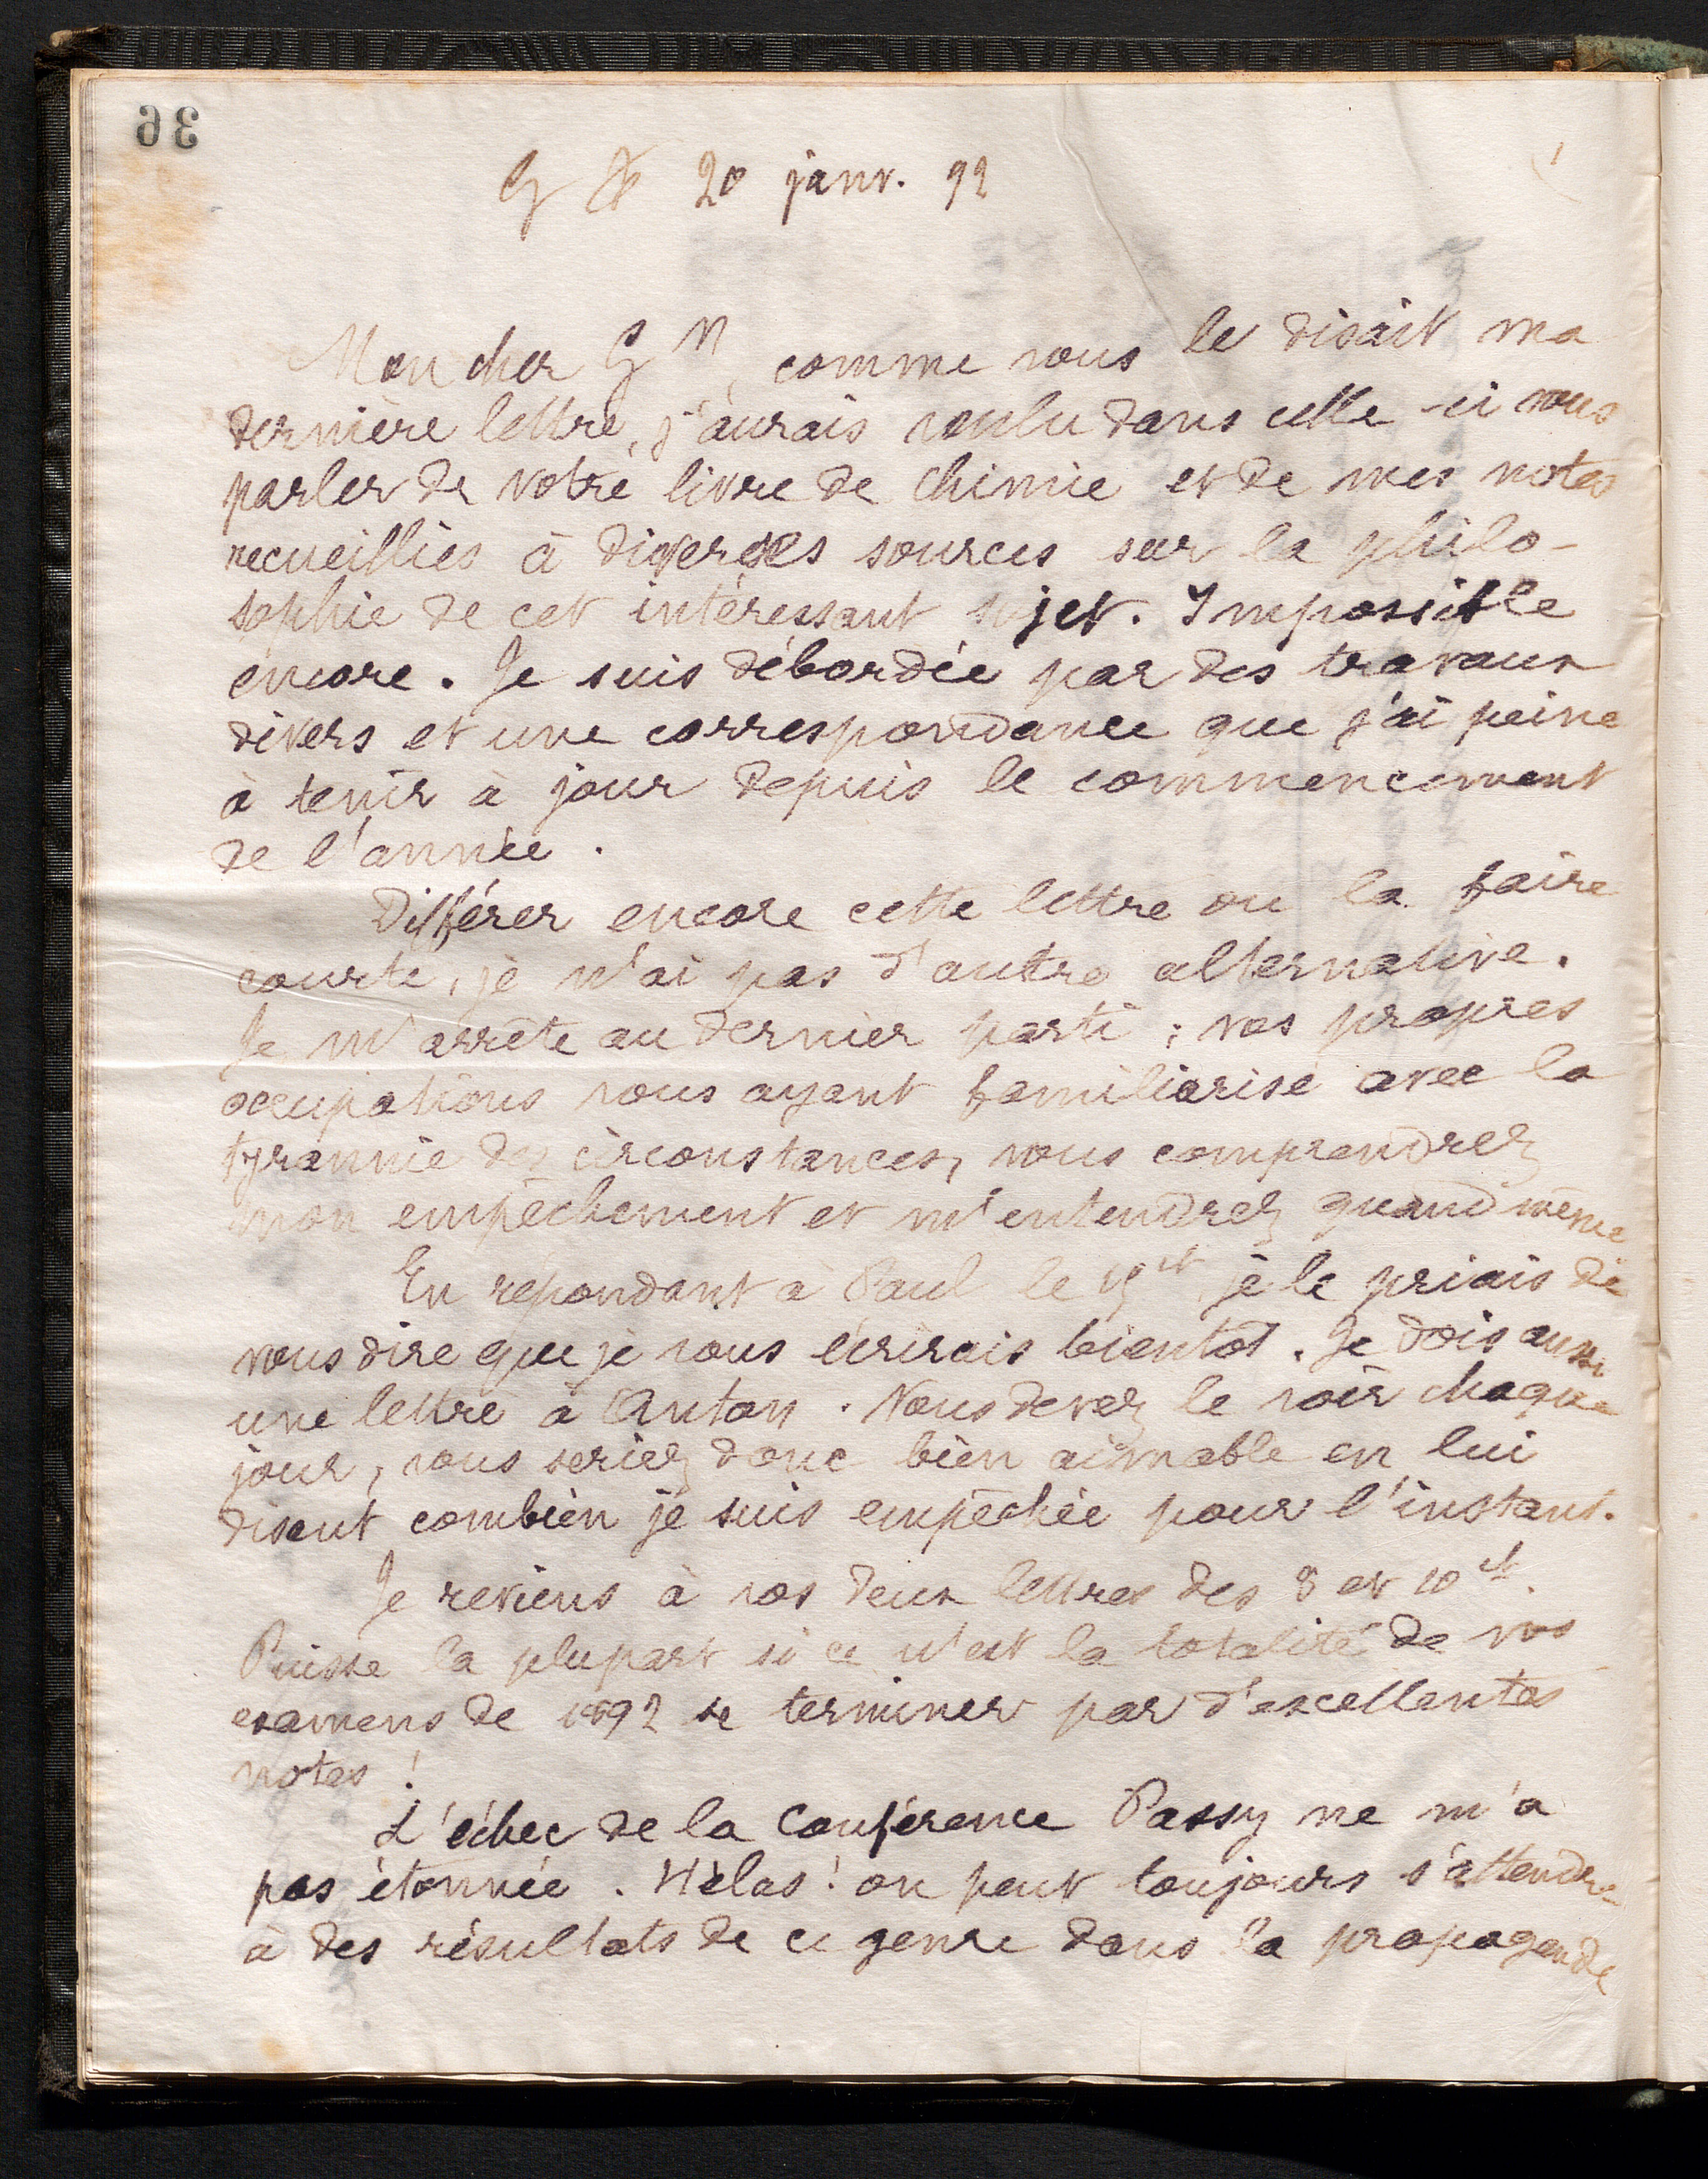 36
G 20 janv. 92
Mon cher G N, comme vous le disait ma
dernière lettre, j'aurais voulu dans celle-ci vous
parler de votre livre de chimie et de mes notes
recueillies à diverses sources sur la philo-
sophie de cet intéressant sujet. Impossible
encore. Je suis débordée par des travaux
divers et une correspondance que j'ai peine
à tenir à jour depuis le commencement
de l'année.
Différer encore cette lettre ou la faire
courte, je n'ai pas d'autre alternative.
Je m'arrête au dernier parti ; vos propres
occupations vous ayant familiarisé avec la
tyrannie des circonstances, vous comprendrez
mon empêchement et m'entendrez quand même.
En répondant à Paul le ct, je le priais de
vous dire que je vous écrirais bientôt. Je dois aussi
une lettre à Anton. Vous devez le voir chaque
jour, vous seriez donc bien aimable en lui
disant combien je suis empêchée pour l'instant.
Je reviens à vos deux lettres des 8 et 10 ct.
Puisse la plupart si ce n'est la totalité de vos
examens de 1892 se terminer par d'excellentes
notes !
L'échec de la Conférence Passy ne m'a
pas étonnée. Hélas ! on peut toujours s'attendre
à des résultats de ce genre dans la propagande